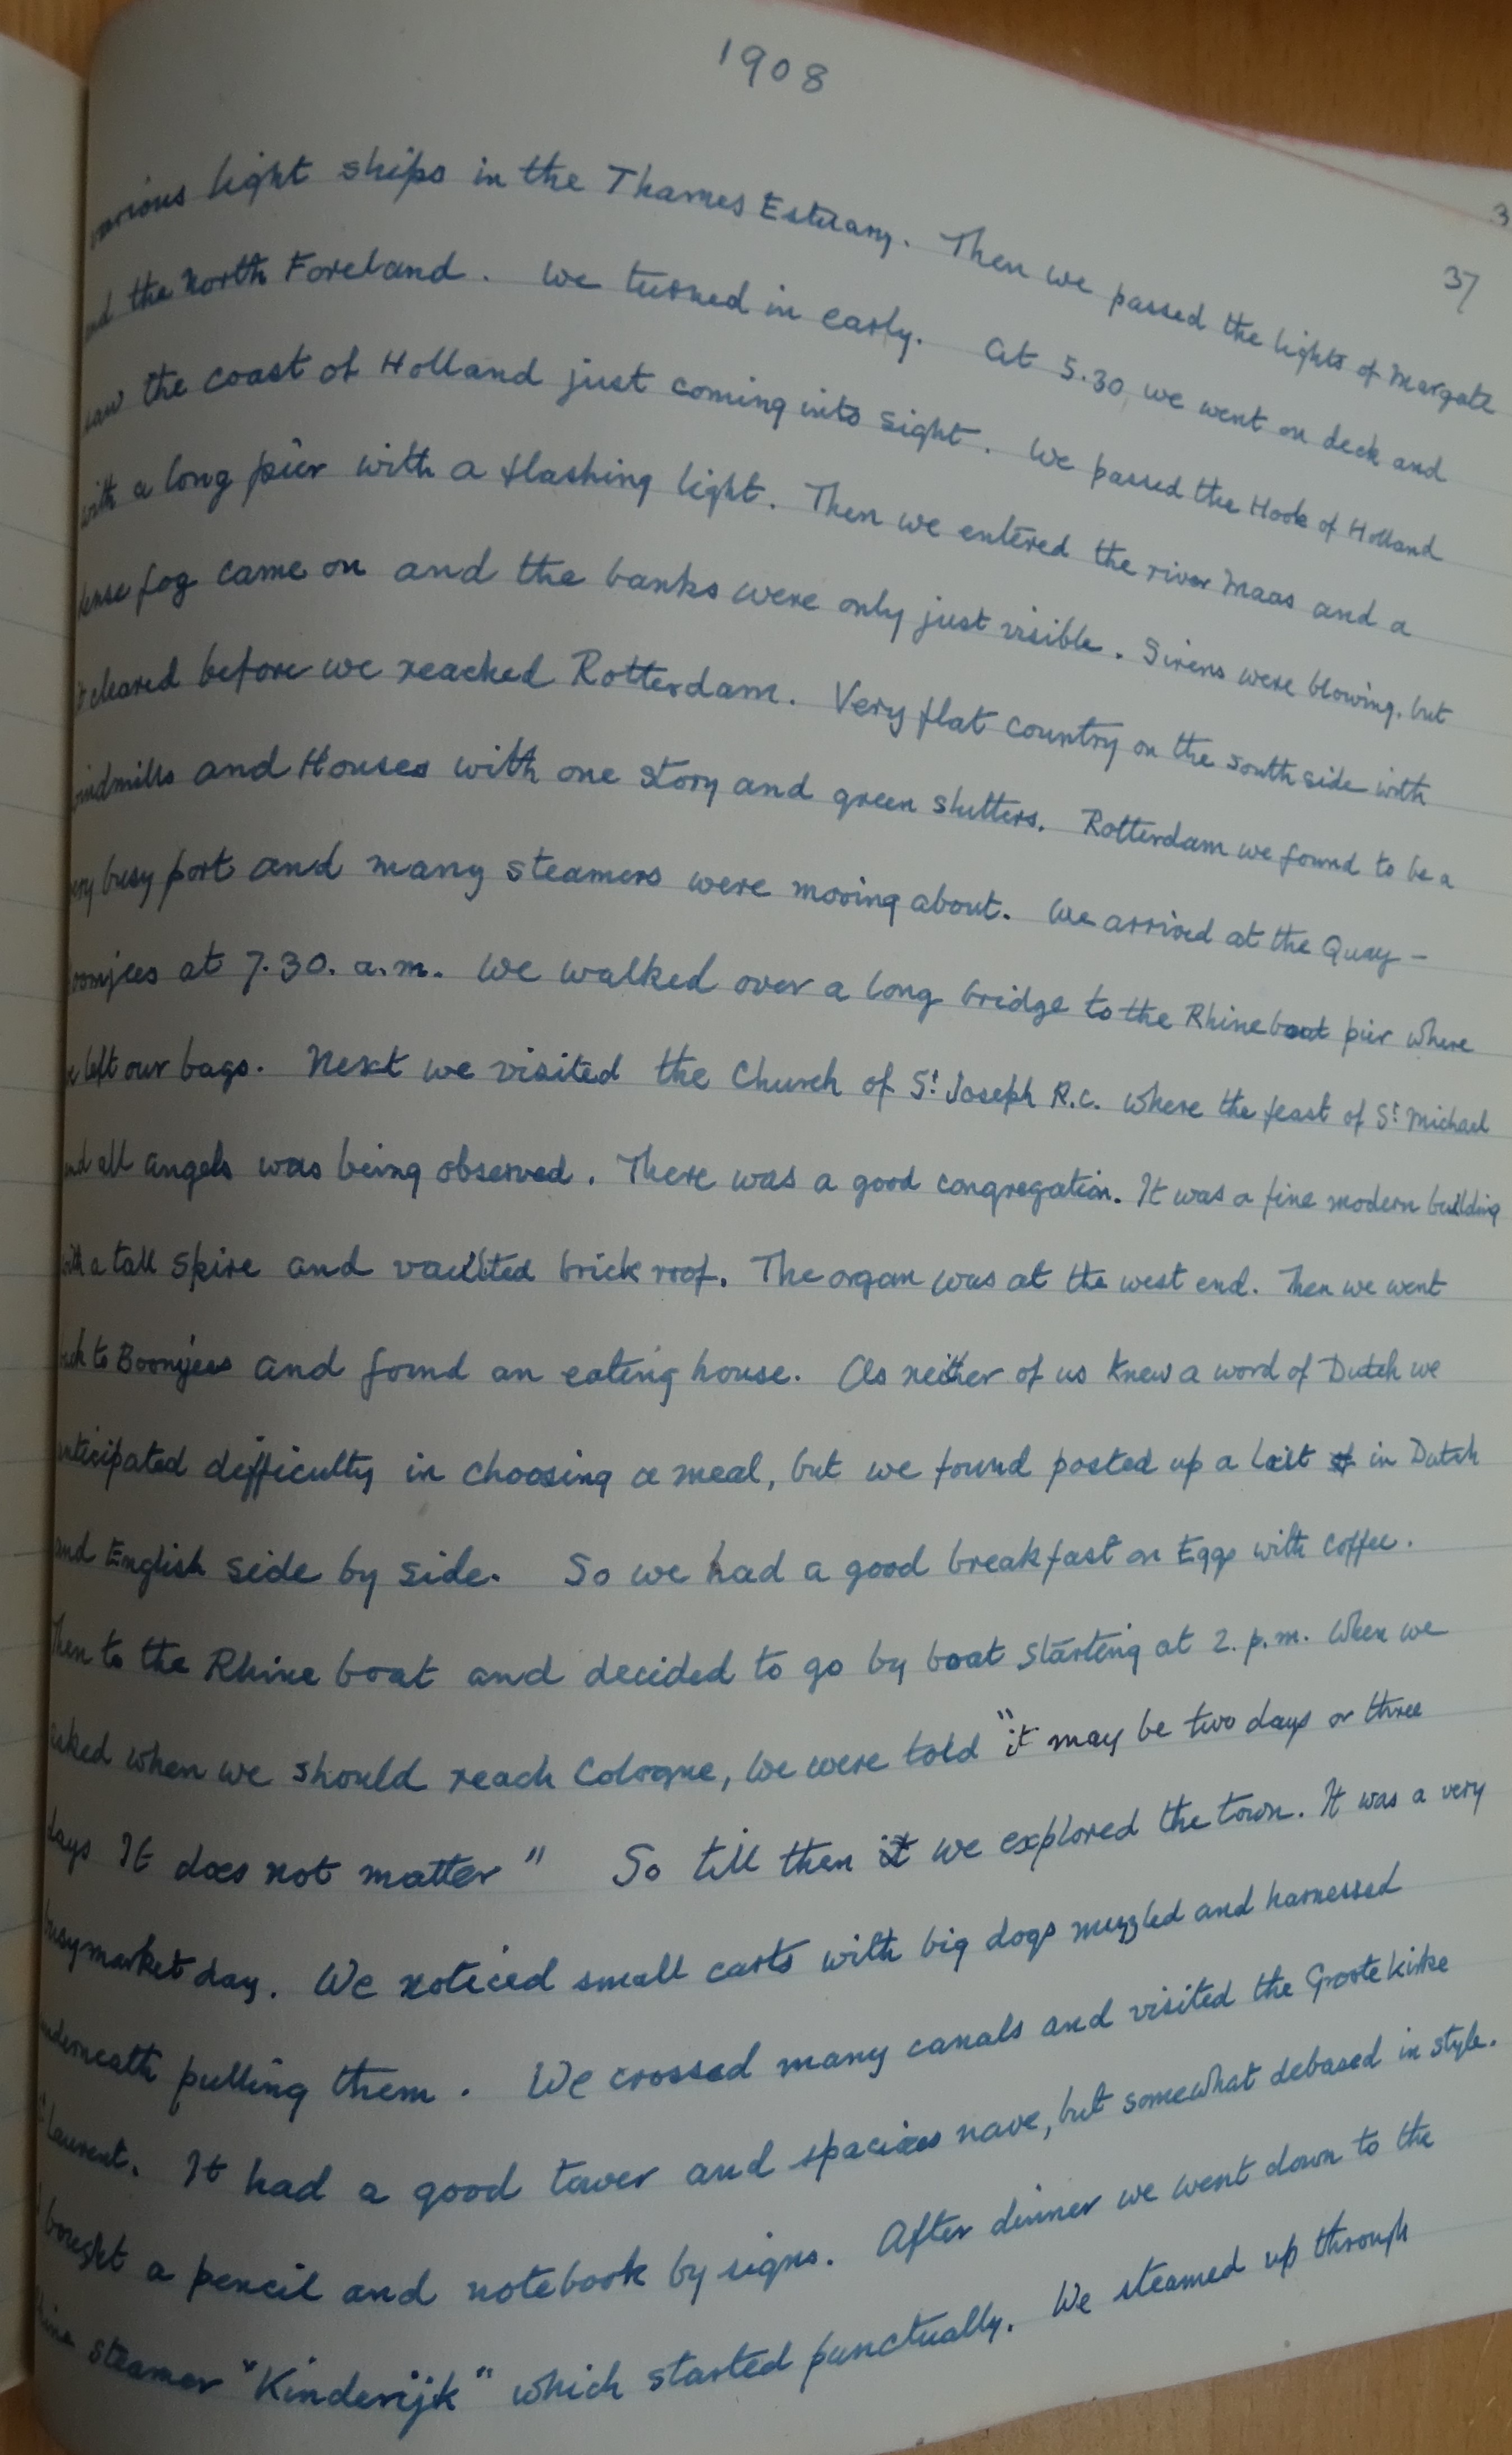 1908
3
37
various light ships in the Thames Estuary. Then we passed the lights of Margate
and the North Foreland. We turned in early. At 5.30 we went on deck and
saw the coast of Holland just coming into sight. We passed the Hook of Holland
with a long pier with a flashing light. Then we entered the river Maas and a
dense fog came on and the banks were only just visible. Sirens were blowing, but
it cleared before we reached Rotterdam. Very flat country on the south side with
windmills and Houses with one story and green shutters. Rotterdam we found to be a
very busy port and many steamers were moving about. We arrived at the Quay -
Boomjees at 7.30. a.m. We walked over a long bridge to the Rhine boat pier where
we left our bags. Next we visited the Church of St Joseph R.C. where the feast of St Michael
and all angels was being observed. There was a good congregation. It was a fine modern building
with a tall spire and vaulted brick roof. The organ was at the west end. Then we went
back to Boomjees and found an eating house. As neither of us knew a word of Dutch we
anticipated difficulty in choosing a meal, but we found posted up a list in Dutch
and English side by side. So we had a good breakfast on Eggs with coffee.
Then to the Rhine boat and decided to go by boat starting at 2. p.m. When we
asked when we should reach Cologne, we were told "it may be two days or three
days It does not matter" So till then we explored the town. It was a very
busy market day. We noticed small carts with big dogs muzzled and harnessed
underneath pulling them. We crossed many canals and visited the Groote Kirke
St Laurent. It had a good tower and spacious nave, but somewhat debased in style.
I bought a pencil and notebook by signs. After dinner we went down to the
Rhine steamer "Kinderijk" which started punctually. We steamed up through